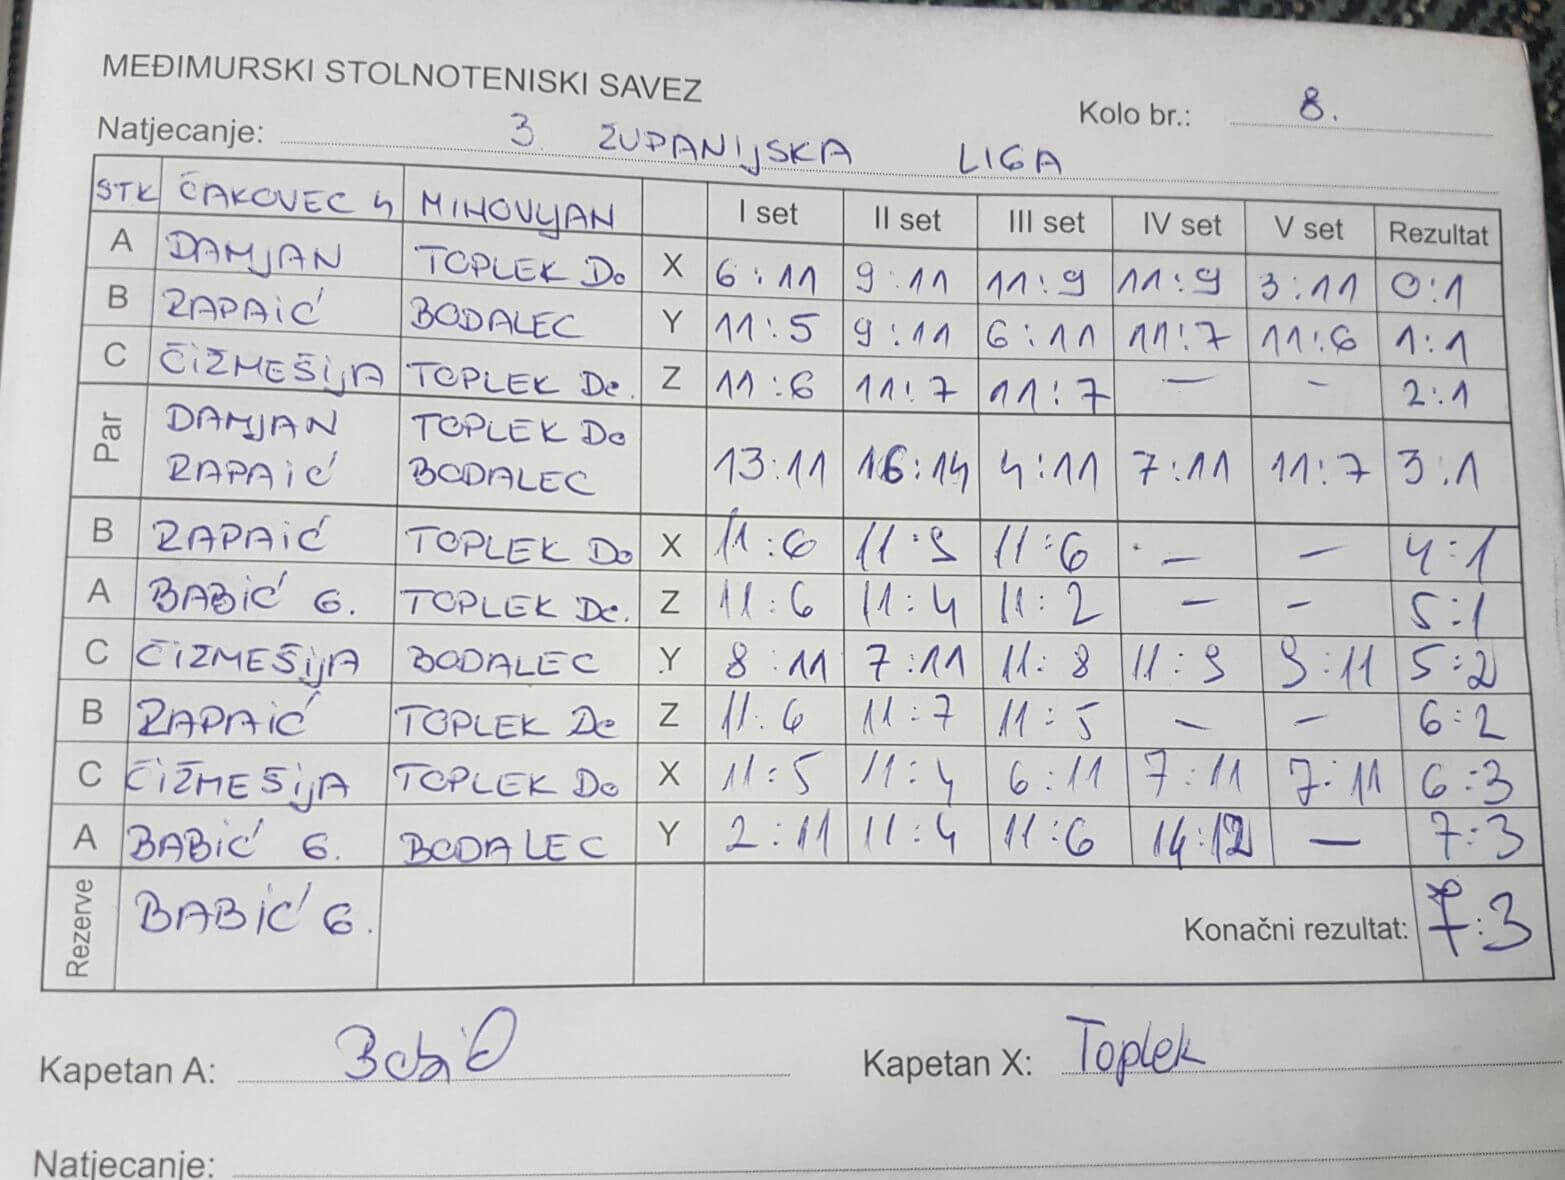 MEĐIMURSKI STOLNOTENISKI SAVEZ
Kolo br.: 8.
Natjecanje: 3. ŽUPANIJSKA LIGA
STK ČAKOVEC 4 MIHOVLJAN I set II set III set IV set V set Rezultat
A DAMJAN TOPLEK Do X 6:11 9:11 11:9 11:9 3:11 0:1
B RAPAIĆ BODALEC Y 11:5 9:11 6:11 11:7 11:6 1:1
C ČIŽMEŠIJA TOPLEK De. Z 11:6 11:7 11:7 – – 2:1
Par DAMJAN TOPLEK Do
RAPAIĆ BODALEC 13:11 16:14 4:11 7:11 11:7 3:1
B RAPAIĆ TOPLEK Do X 11:6 11:9 11:6 – – 4:1
A BABIĆ G. TOPLEK De. Z 11:6 11:4 11:2 – – 5:1
C ČIZMEŠIJA BODALEC Y 8:11 7:11 11:8 11:9 9:11 5:2
B RAPAIĆ TOPLEK De Z 11:6 11:7 11:5 – – 6:2
C ČIŽMEŠIJA TOPLEK Do X 11:5 11:4 6:11 7:11 7:11 6:3
A BABIĆ G. BODALEC Y 2:11 11:4 11:6 14:12 – 7:3
Rezerve BABIĆ G. Konačni rezultat: 7:3
Kapetan A: Babić Kapetan X: Toplek
Natjecanje: